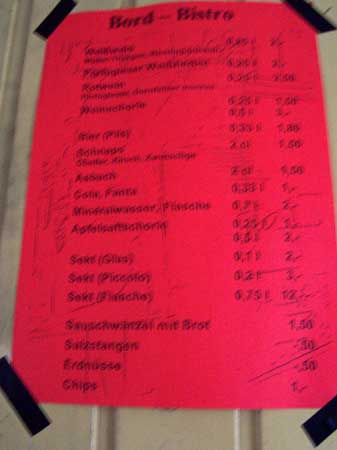 Bord – Bistro
Weißwein 0,25 l 2,-
Portugieser Weißherbst 0,25 l 2,-
Rotwein 0,25 l 2,50
Weinschorle 0,25 l 1,50
0,5 l
Bier (Pils) 0,33 l 1,80
Schnaps 2 cl 1,50
Asbach 2 cl 1,50
Cola, Fanta 0,33 l 1,-
Mineralwasser, Flasche 0,7 l 2,-
Apfelsaftschorle 0,25 l 1,-
0,5 l 2,-
Sekt (Glas) 0,1 l 2,-
Sekt (Piccolo) 0,2 l 3,-
Sekt (Flasche) 0,75 l 12,-
Sauschwänzel mit Brot 1,50
Salzstangen -,50
Erdnüsse -,50
Chips 1,-